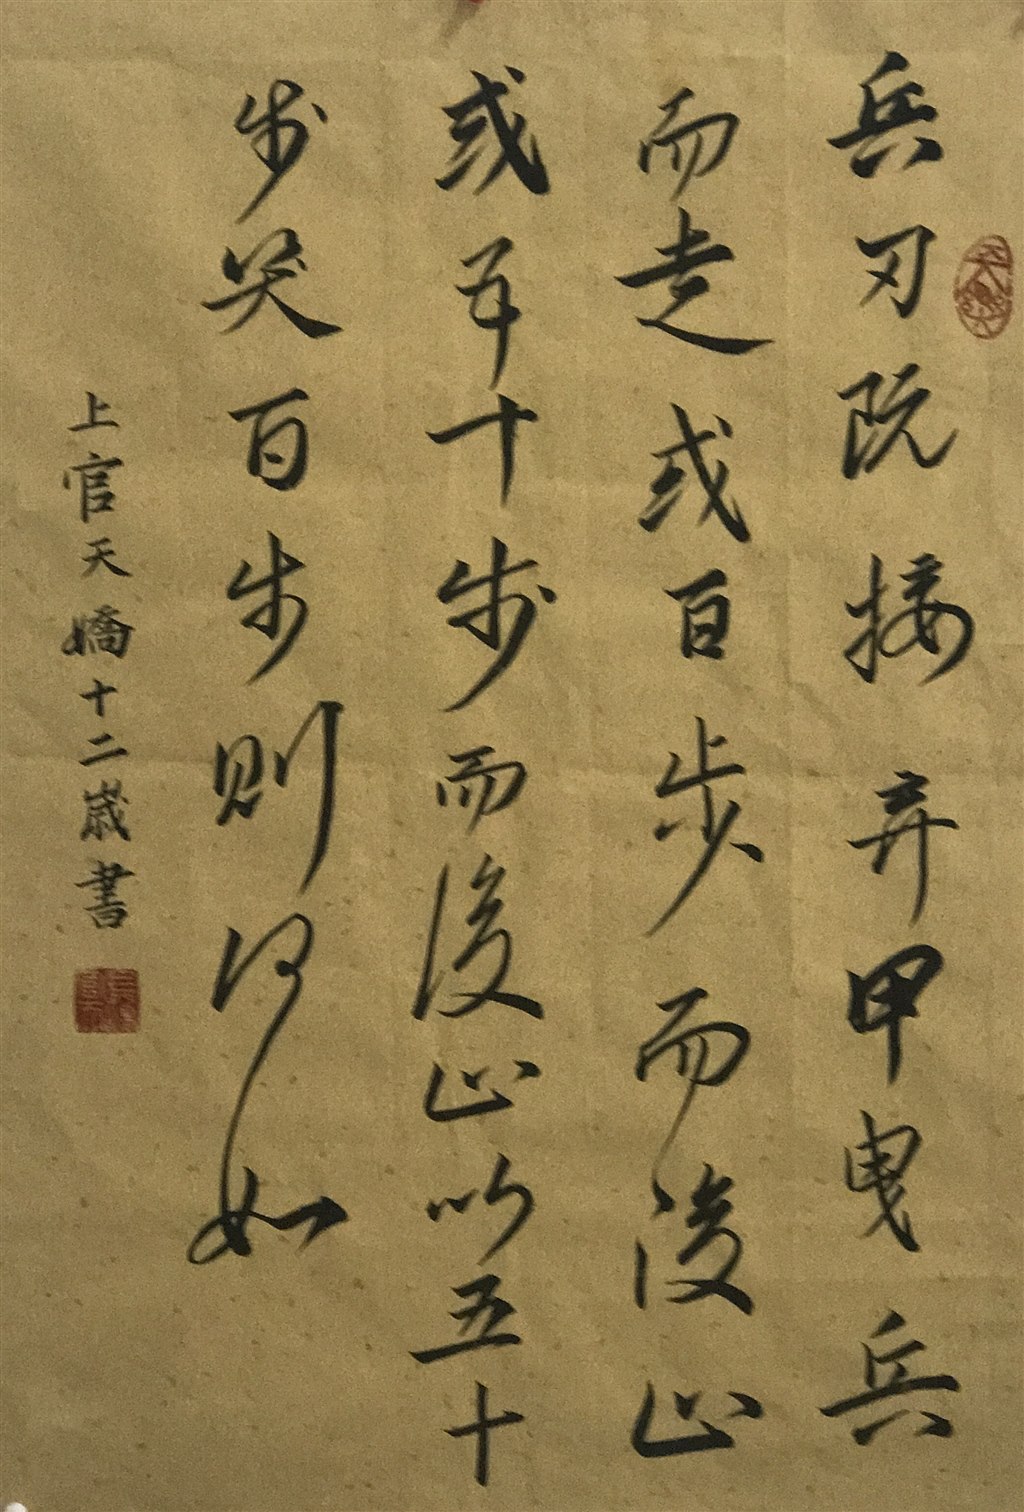 兵刃既接弃甲曳兵
而走或百步而後止
或五十步而後止以五十
步笑百步則何如
上官天嬌十二歲書